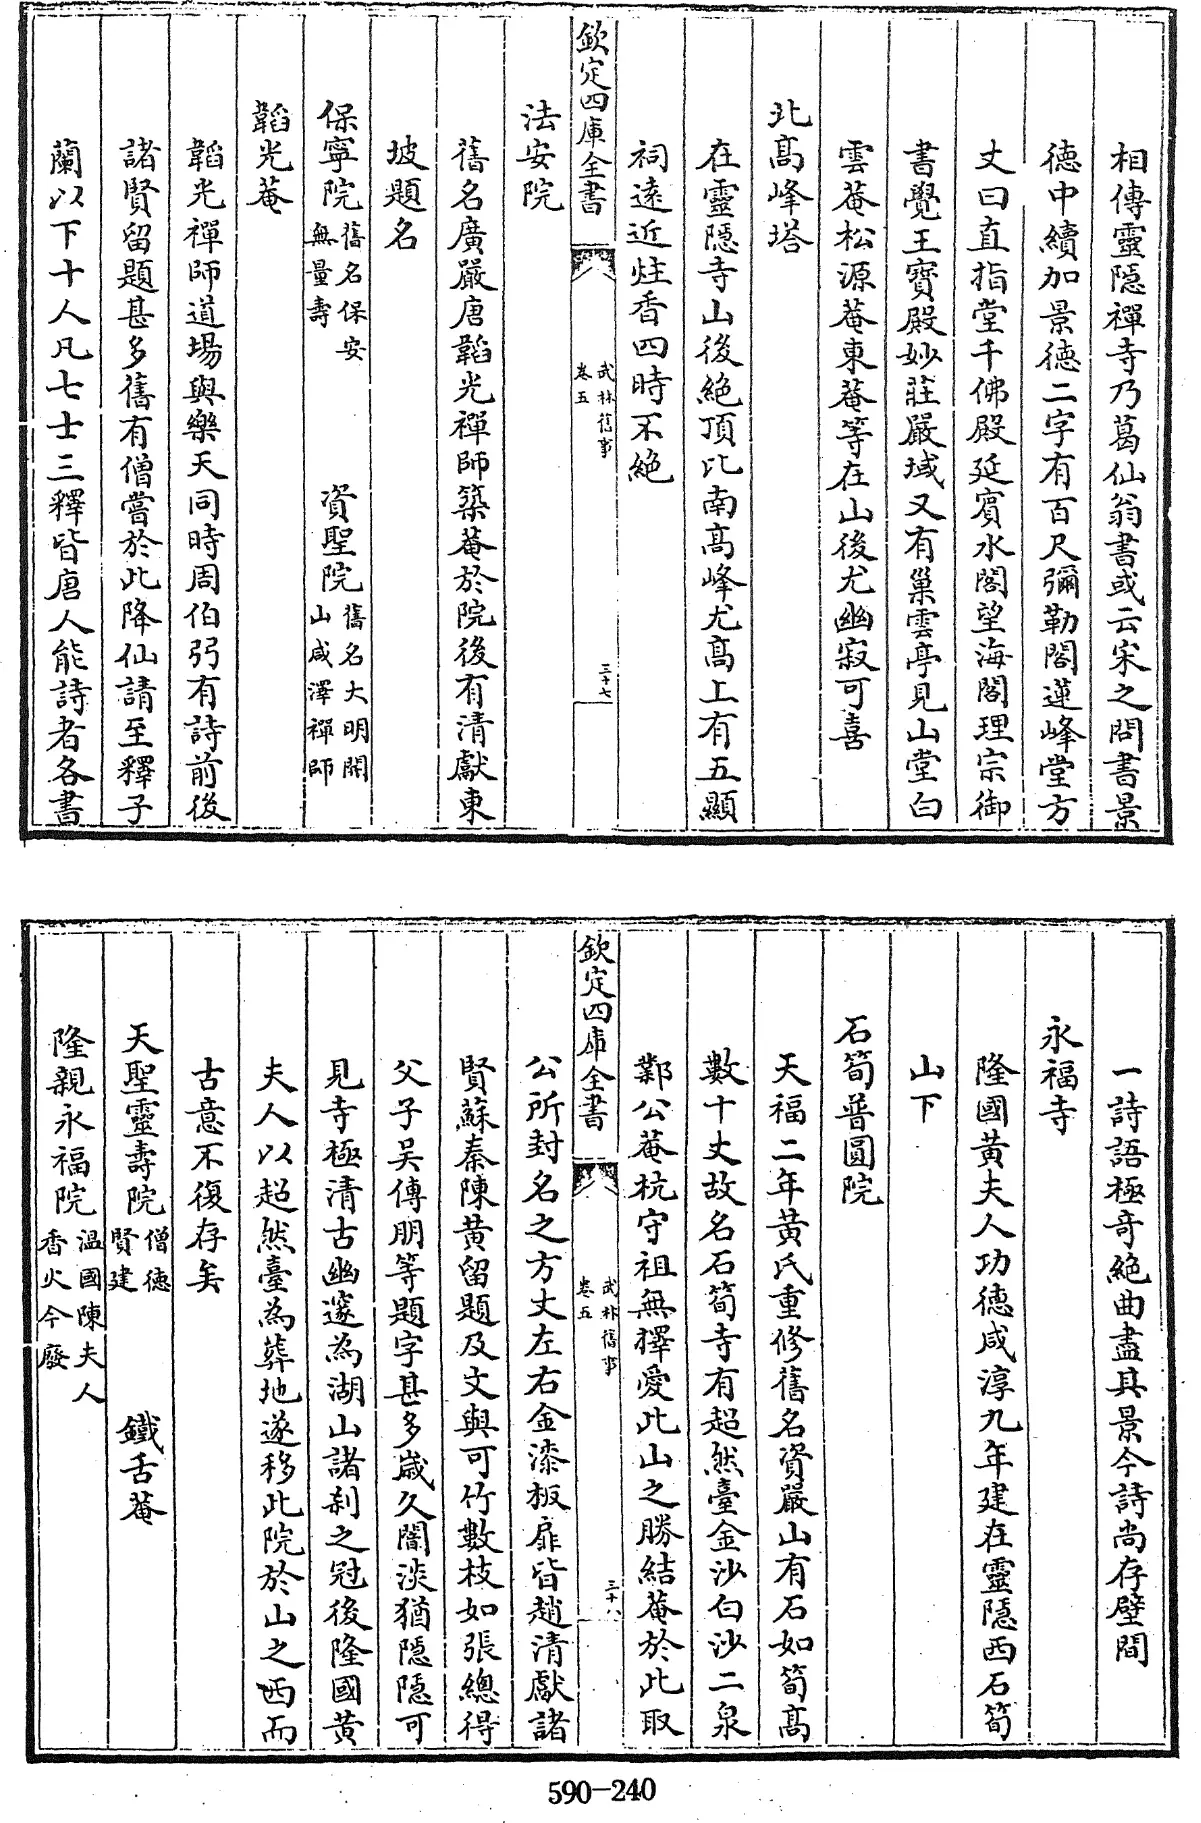 相傳靈隱禪寺乃葛仙翁書或云宋之問書景
德中續加景德二字有百尺彌勒閣蓮峰堂方
丈曰直指堂千佛殿延賓水閣望海閣理宗御
書覺王寶殿妙莊嚴域又有巢雲亭見山堂白
雲菴松源菴東菴等在山後尤幽寂可喜
北高峰塔
在靈隱寺山後絶頂比南高峰尤高上有五顯
祠遠近炷香四時不絶
欽定四庫全書
武林舊事
卷五
三十七
法安院
舊名廣嚴唐韜光禪師築菴於院後有清獻東
坡題名
保寧院舊名保安
無量壽
資聖院舊名大明開
山咸澤禪師
韜光菴
韜光禪師道場與樂天同時周伯弜有詩前後
諸賢留題甚多舊有僧嘗於此降仙請至釋子
蘭以下十人凡七士三釋皆唐人能詩者各書
一詩語極奇絶曲盡其景今詩尚存壁間
永福寺
隆國黃夫人功德咸淳九年建在靈隱西石筍
山下
石筍普圓院
天福二年黃氏重修舊名資嚴山有石如筍高
數十丈故名石筍寺有超然臺金沙白沙二泉
鄴公菴杭守祖無擇愛此山之勝結菴於此取
欽定四庫全書
武林舊事
卷五
三十八
公所封名之方丈左右金漆板扉皆趙清獻諸
賢蘇秦陳黃留題及文與可竹數枝如張總得
父子吳傳朋等題字甚多歲久闇淡猶隱隱可
見寺極清古幽邃為湖山諸刹之冠後隆國黃
夫人以超然臺為葬地遂移此院於山之西而
古意不復存矣
天聖靈壽院僧德
賢建
鐵舌菴
隆親永福院溫國陳夫人
香火今廢
590-240